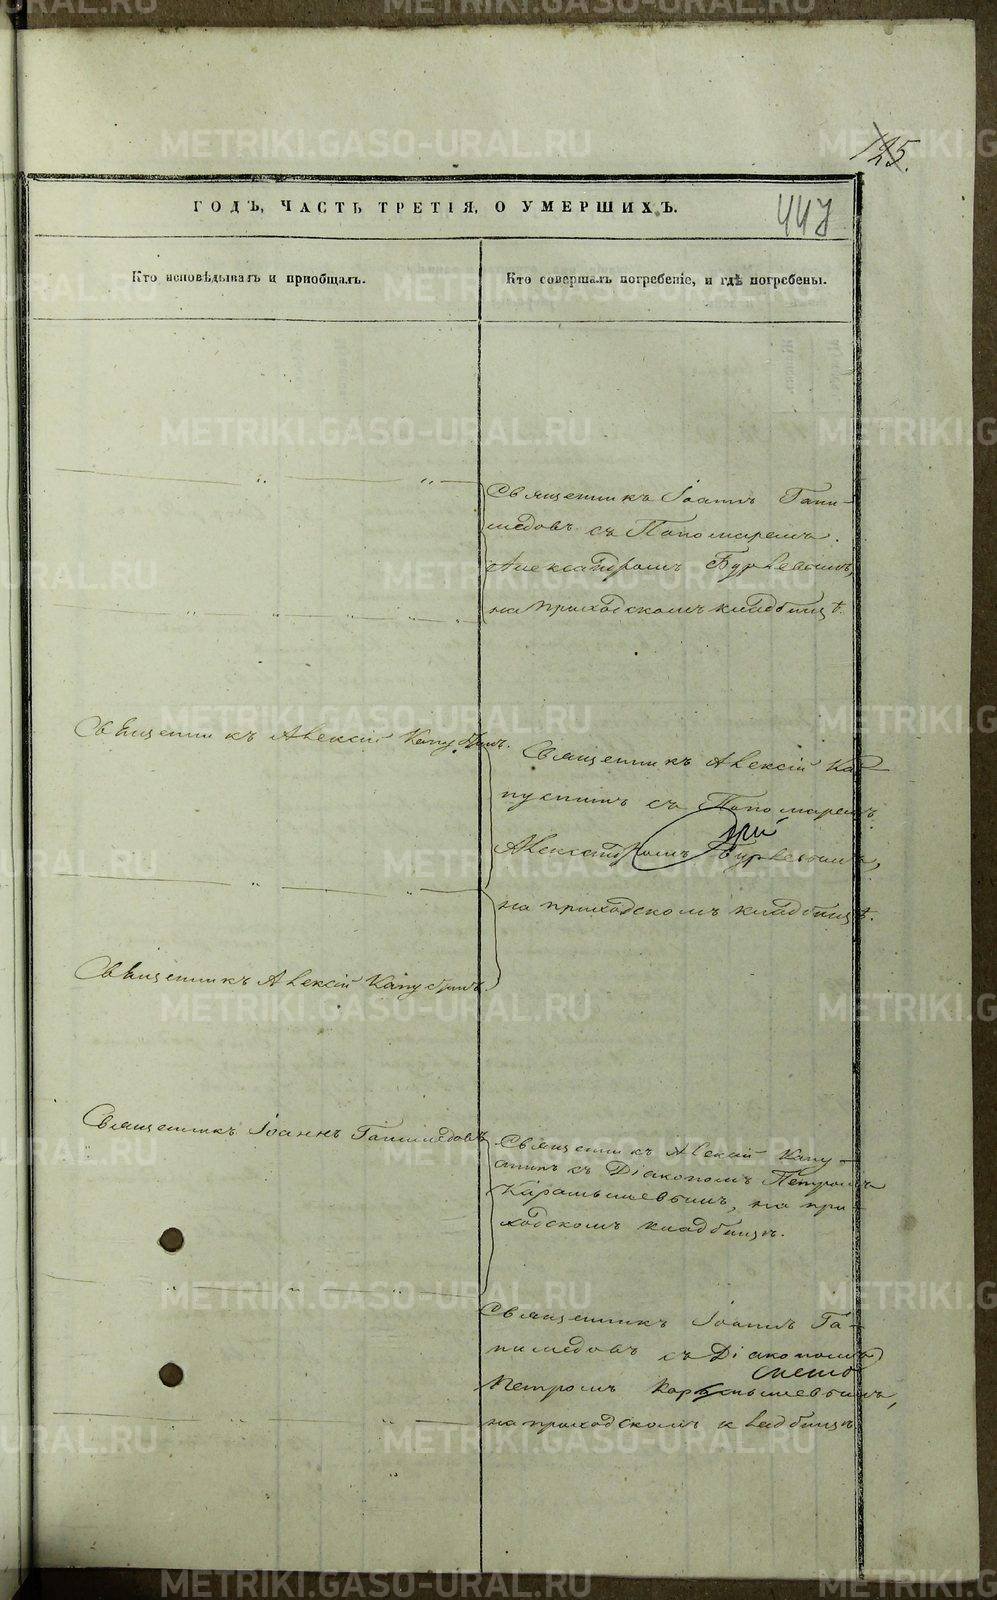 125.
ГОДЪ, ЧАСТЬ ТРЕТІЯ, О УМЕРШИХЪ.
447
Кто исповѣдывалъ и пріобщалъ.
Кто совершалъ погребеніе, и гдѣ погребены.
Священникъ Іоаннъ Гани-
медовъ съ Пономаремъ
Александромъ Бурлевымъ,
на приходскомъ кладбищѣ.
Священникъ Алексій Капустинъ.
Священникъ Алексій Ка-
пустинъ съ Пономаремъ
Александромъ Бурлевымъ,
на приходскомъ кладбищѣ.
Священникъ Алексій Капустинъ.
Священникъ Іоаннъ Ганимедовъ
Священникъ Алексій Капу-
стинъ съ Діакономъ Петромъ
Карамышевымъ, на при-
ходскомъ кладбищѣ.
Священникъ Іоаннъ Га-
нимедовъ съ Діакономъ
Петромъ Карамышевымъ,
на приходскомъ кладбищѣ
METRIKI.GASO-URAL.RU